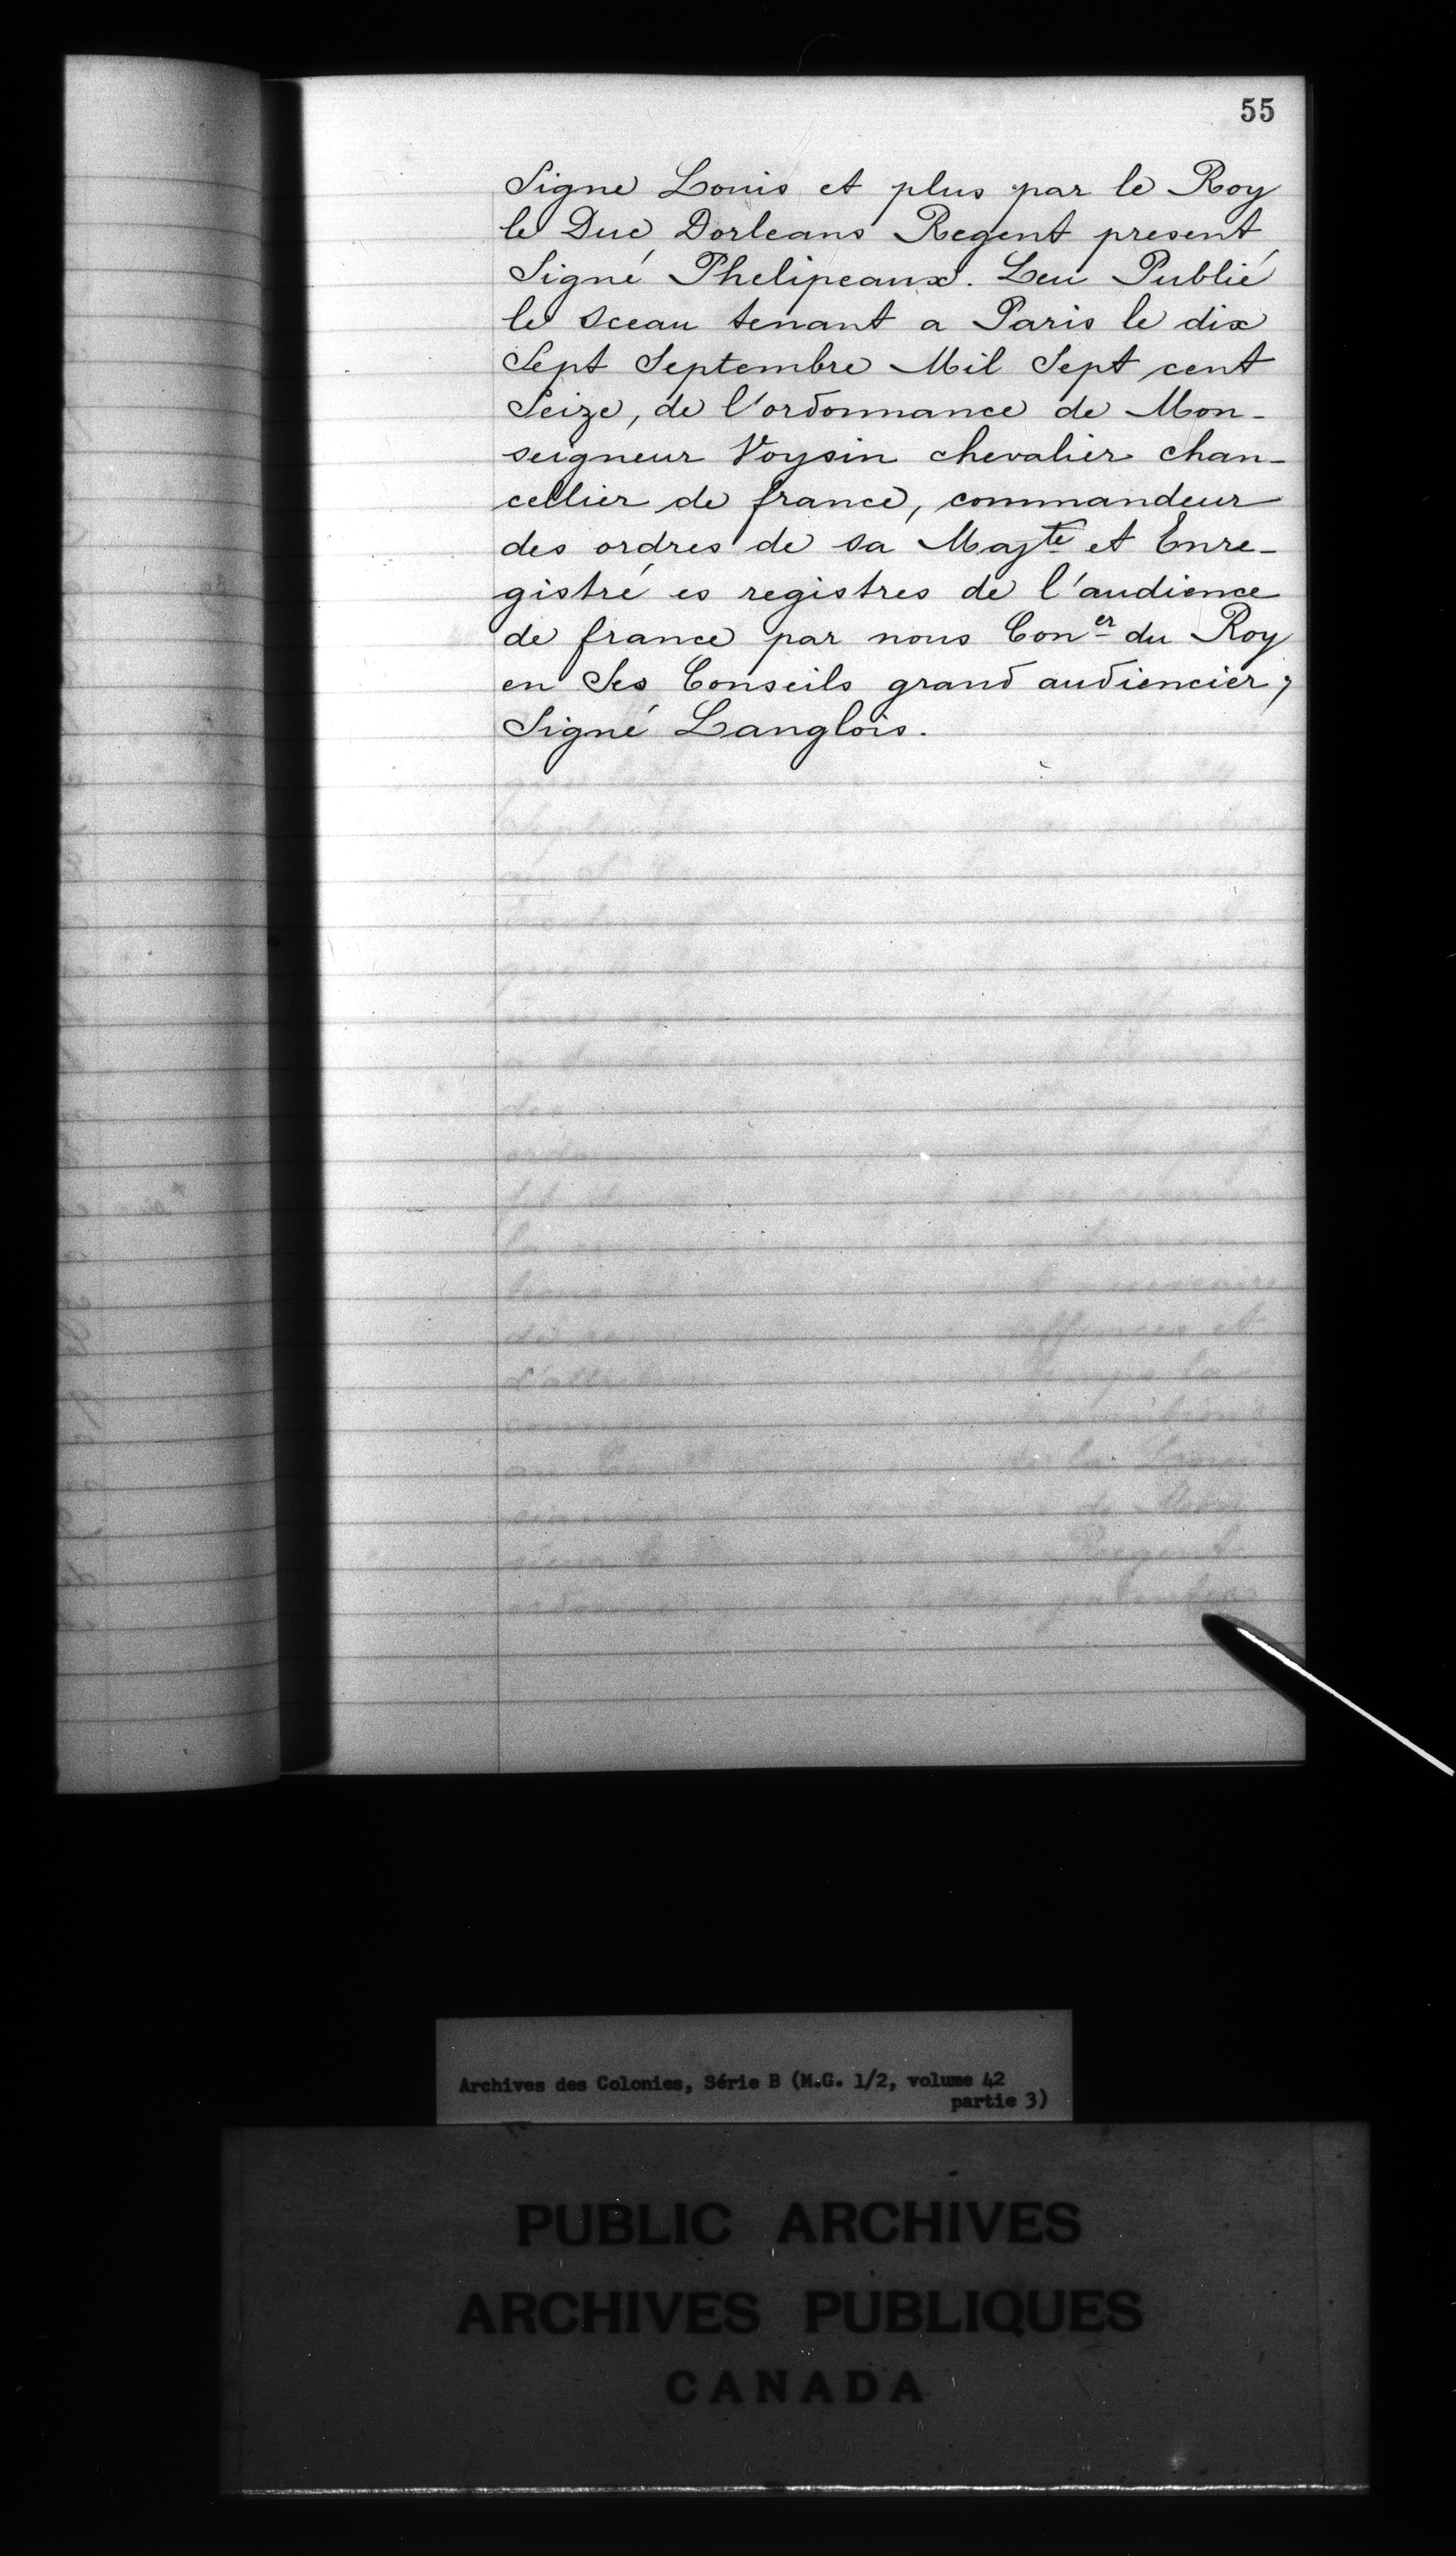 55
Signé Louis et plus par le Roy
le Duc Dorleans Regent present
Signé Phelipeaux. Leu Publié
le Sceau tenant a Paris le dix
Sept Septembre Mil Sept cent
Seize, de l'ordonnance de Mon-
seigneur Voysin chevalier chan-
cellier de france, commandeur
des ordres de sa Majté et Enre-
gistré es registres de l'audience
de france par nous Coner du Roy
en Ses Conseils grand audiencier,
Signé Langlois.
Archives des Colonies, Série B (M.G. 1/2, volume 42
partie 3)
PUBLIC ARCHIVES
ARCHIVES PUBLIQUES
CANADA